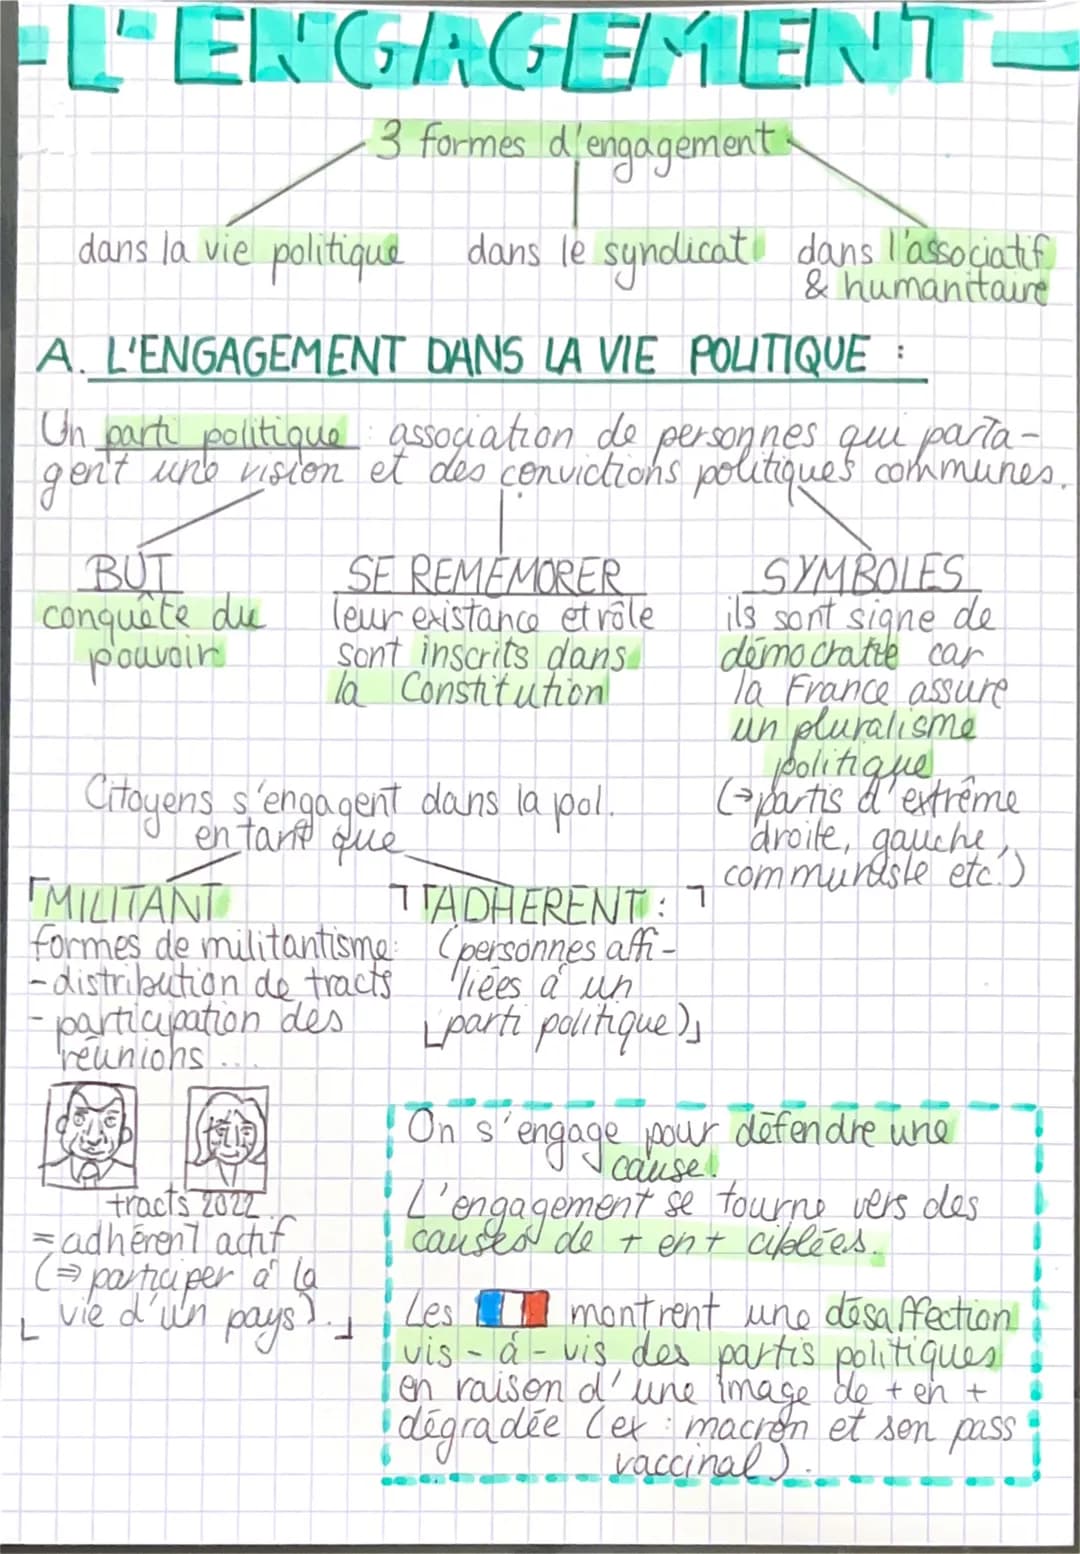 - L'ENGAGEMENT -
3 formes d'engagement
dans la vie politique
dans le syndicat
dans l'associatif
& humanitaire
A. L'ENGAGEMENT DANS LA VIE POLITIQUE :
Un parti politique : association de personnes qui parta-
gent une vision et des convictions politiques communes.
BUT
conquête du
pouvoir
SE REMEMORER
leur existance et rôle
sont inscrits dans
la Constitution
SYMBOLES
ils sont signe de
démocratie car
la France assure
un pluralisme
politique
(→partis d'extrême
droite, gauche,
communiste etc.)
Citoyens s'engagent dans la pol.
en tant que
MILITANT
formes de militantisme:
- distribution de tracts
- participation des
réunions ...
tracts 2022.
= adhérent actif
(⇒ participer à la
vie d'un pays).
ADHERENT :
(personnes affi-
liées à un
parti politique)
On s'engage pour défendre une
cause!
L'engagement se tourne vers des
causes de + en + ciblées.
Les montrent une désaffection
vis-à-vis des partis politiques
en raison d'une image de + en +
dégradée (ex : macron et son pass
vaccinal).